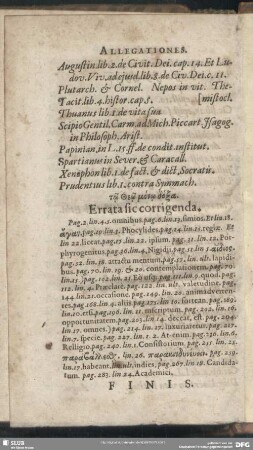 ALLEGATIONES.
Augustin. lib. 2. de Civit. Dei. cap. 14. Et Lu-
dov. Viv. ad ejusd. lib. 8. de Civ. Dei. c. 11.
Plutarch. & Cornel. Nepos in vit. The-
Tacit. lib. 4. histor. cap. 5. [mistocl.
Thuanus lib. 1. de vita sua
Scipio Gentil. Carm. ad Mich. Piccart. Isagog.
in Philosoph. Arist.
Papinian. in L. 15. ff. de condit. institut.
Spartianus in Sever. & Caracall.
Xenophon lib. 1. de fact. & dict. Socratis.
Prudentius lib. 1. contra Symmach.
τῷ Θεῷ μόνῳ δόξα.
Errata sic corrigenda.
Pag. 2. lin. 4. omnibus. pag. 6. lin. 13. simios. Et lin. 18.
Phocylides. pag. 14. lin. 15. regis. Et
lin. 22. liceat. pag. 17. lin. 22. ipsum. pag.
phyrogenitus. pag. 30. lin. 4. Nigidii. pag.
pag. 52. lin. 18. attactu mentum. pag. 57. lin. ult. lapidi-
bus. pag. 70. lin. 19. contemplationem. pag. 70.
quod. pag.
lin. 4. Præclare. pag. 122. lin. ult. valetudine. pag.
144. lin. 21. occasione. pag. 149. lin. 20. animadverten-
tes. pag. 168. lin. 4. aliis. pag. 170. lin. 10. fortean. pag. 189.
lin. 10. etsi. pag. 196. lin. 11. inscriptum. pag. 212. lin. 16
opportunitatem. pag. 213. lin. 14. deceat. est. pag. 294.
lin. 17. omnes.) pag. 214. lin. 17. luxuriatur. pag. 217.
lin. 7. specie. pag. lin. 2. At enim. pag. lin. 6.
Relligio. pag. 240. lin. 1. Consistorium. pag. 211. lin. 23.
lin. 26. pag. 219.
lin. 17. habeant. lin. ult. indies. pag. 267. lin. 18. Candida-
tum. pag. 283. lin. 24. Academici.
FINIS.
SLUB
DFG